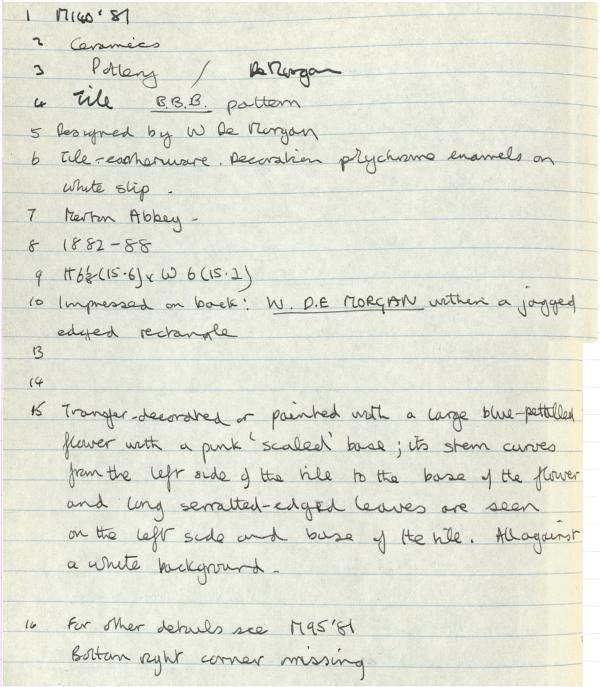 1 M140'81
2 Ceramics
3 Pottery / De Morgan
4 Tile B.B.B. pattern
5 Designed by W De Morgan
6 Tile - earthenware. Decoration polychrome enamels on
white slip.
7 Merton Abbey -
8 1882-88
9 H 6⅛ (15.6) x W 6 (15.2)
10 Impressed on back: W. D.E MORGAN within a jagged
edged rectangle
13
14
15 Transfer-decorated or painted with a large blue-pettalled
flower with a pink 'scaled' base; its stem curves
from the left side of the tile to the base of the flower
and long serratted-edged leaves are seen
on the left side and base of the tile. All against
a white background.
16 For other details see M95'81
Bottom right corner missing